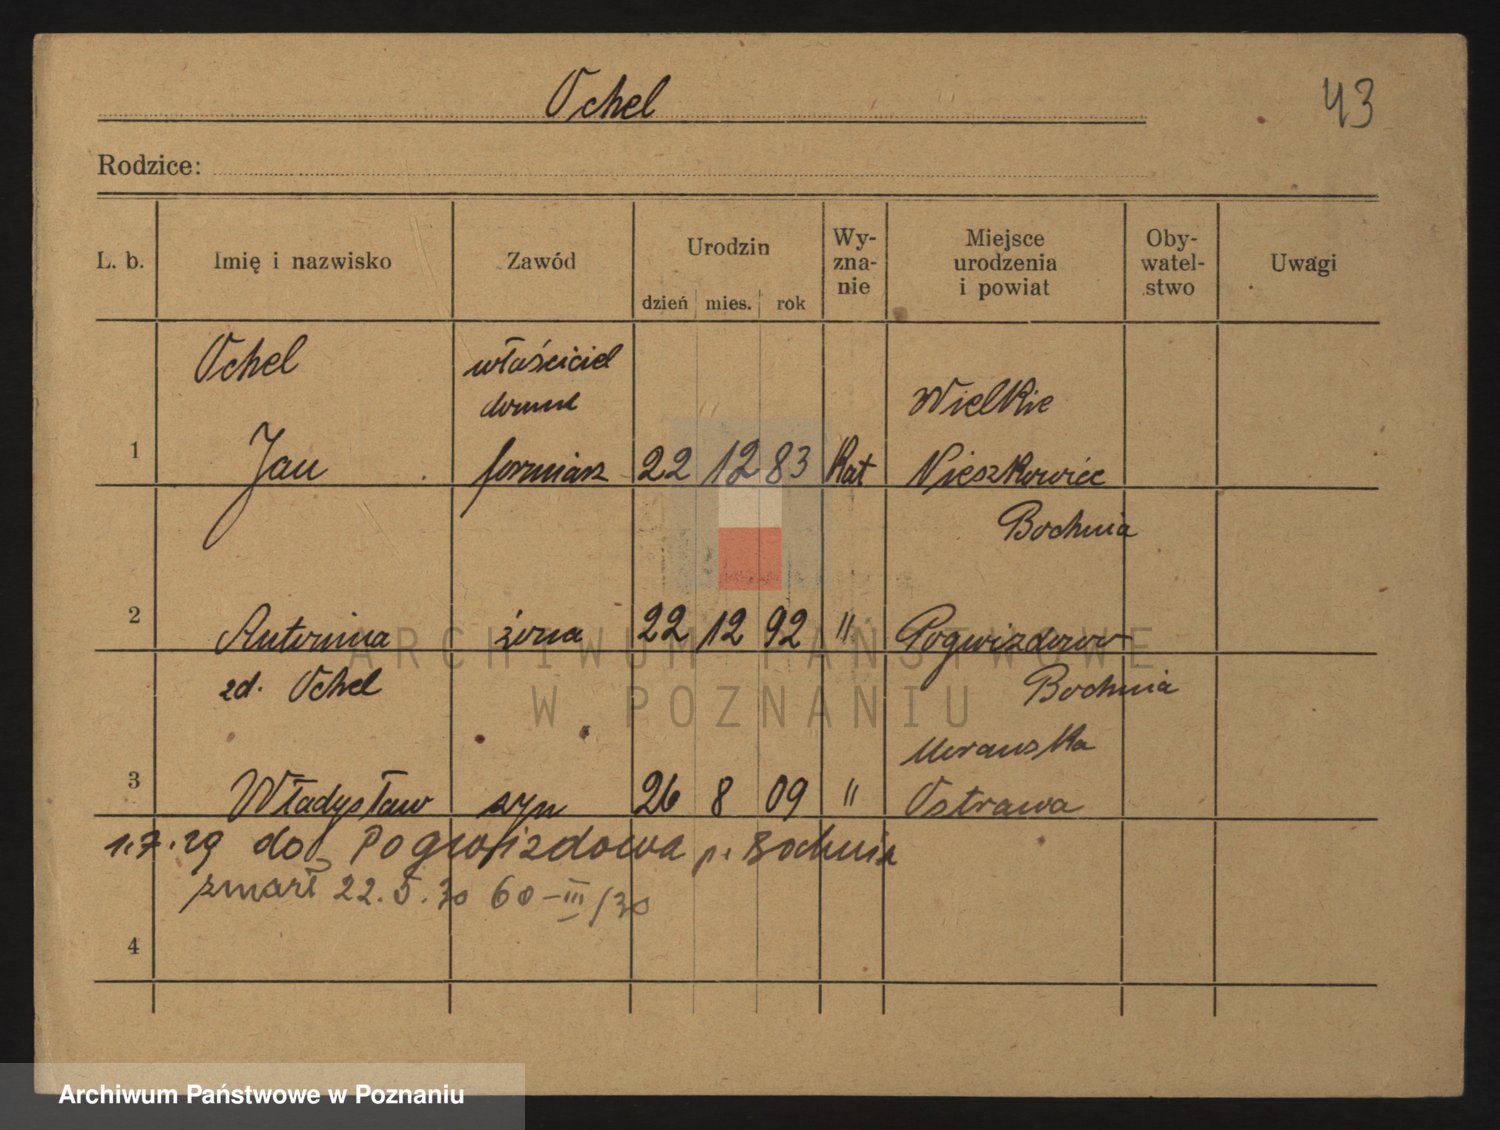 Ochel
43
Rodzice:
L. b. Imię i nazwisko Zawód Urodzin dzień mies. rok Wy-zna-nie Miejsce urodzenia i powiat Oby-watel-stwo Uwagi
Ochel właściciel
domu Wielkie
1 Jan formiarz 22 12 83 Kat Nieszkowice
Bochnia
2 Antonina żona 22 12 92 " Pogwizdorow
zd. Ochel Bochnia
Morawska
3 Władysław syn 26 8 09 " Ostrawa
1.7.29 do Pogwizdowa p. Bochnia
zmarł 22.5.30 60-III/30
4
ARCHIWUM PAŃSTWOWE
W POZNANIU
Archiwum Państwowe w Poznaniu